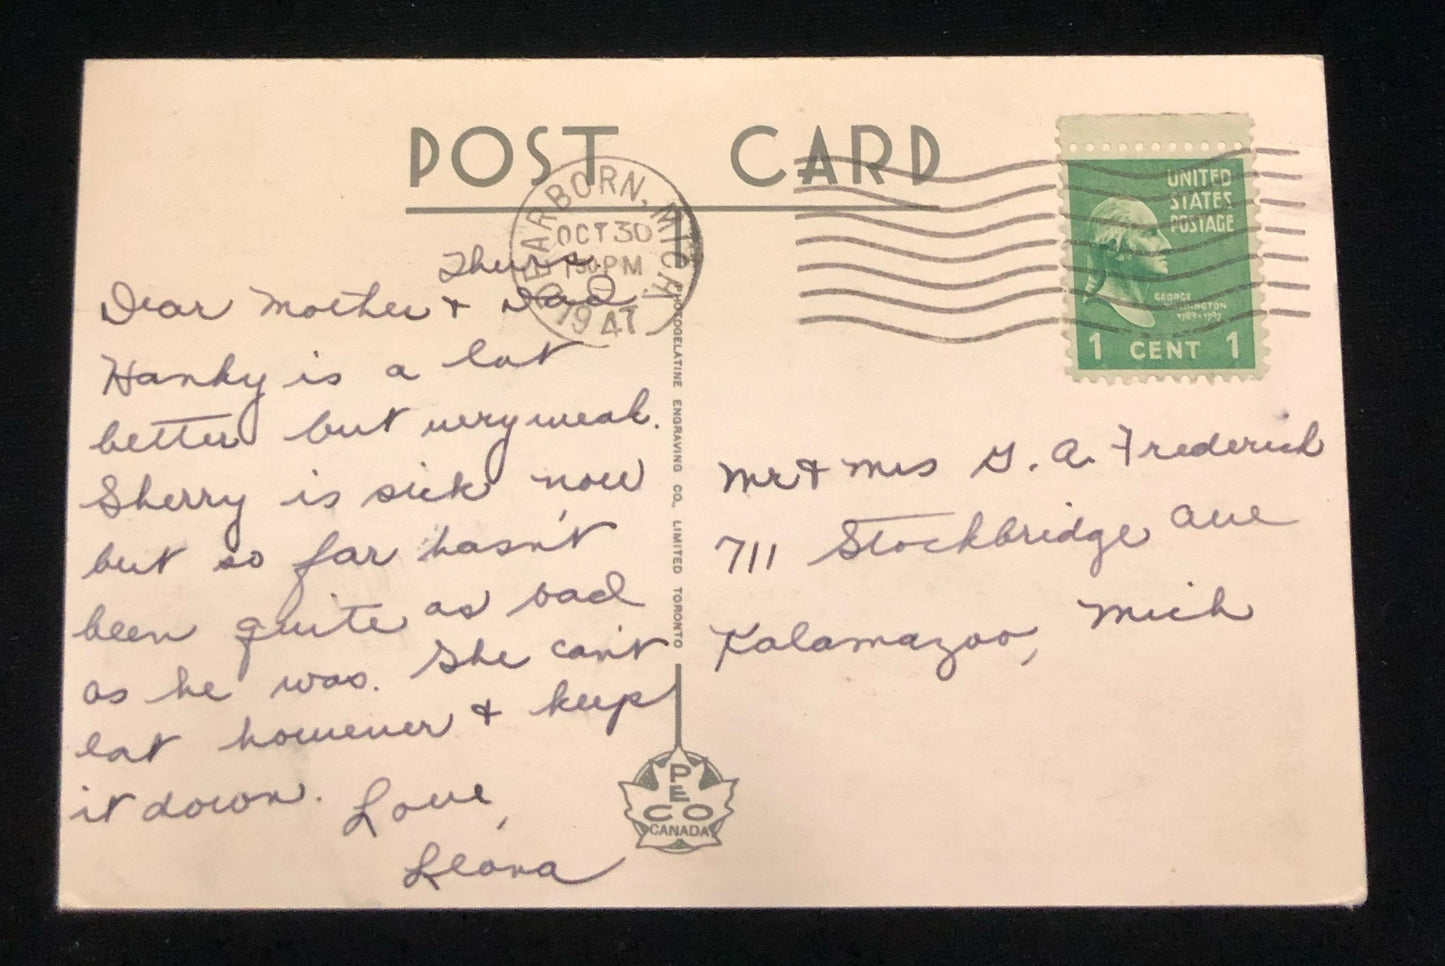 POST CARD
DEARBORN, MICH.
OCT 30
1 30 PM
1947
UNITED
STATES
POSTAGE
GEORGE
WASHINGTON
1789-1797
1 CENT 1
Thurs.
Dear Mother & Dad,
Hanky is a lot
better but very weak.
Sherry is sick now
but so far hasn't
been quite as bad
as he was. She can't
eat however & keep
it down. Love,
Leona
PHOTOGELATINE ENGRAVING CO., LIMITED TORONTO
PECO
CANADA
Mr & Mrs G. A. Frederick
711 Stockbridge Ave
Kalamazoo, Mich